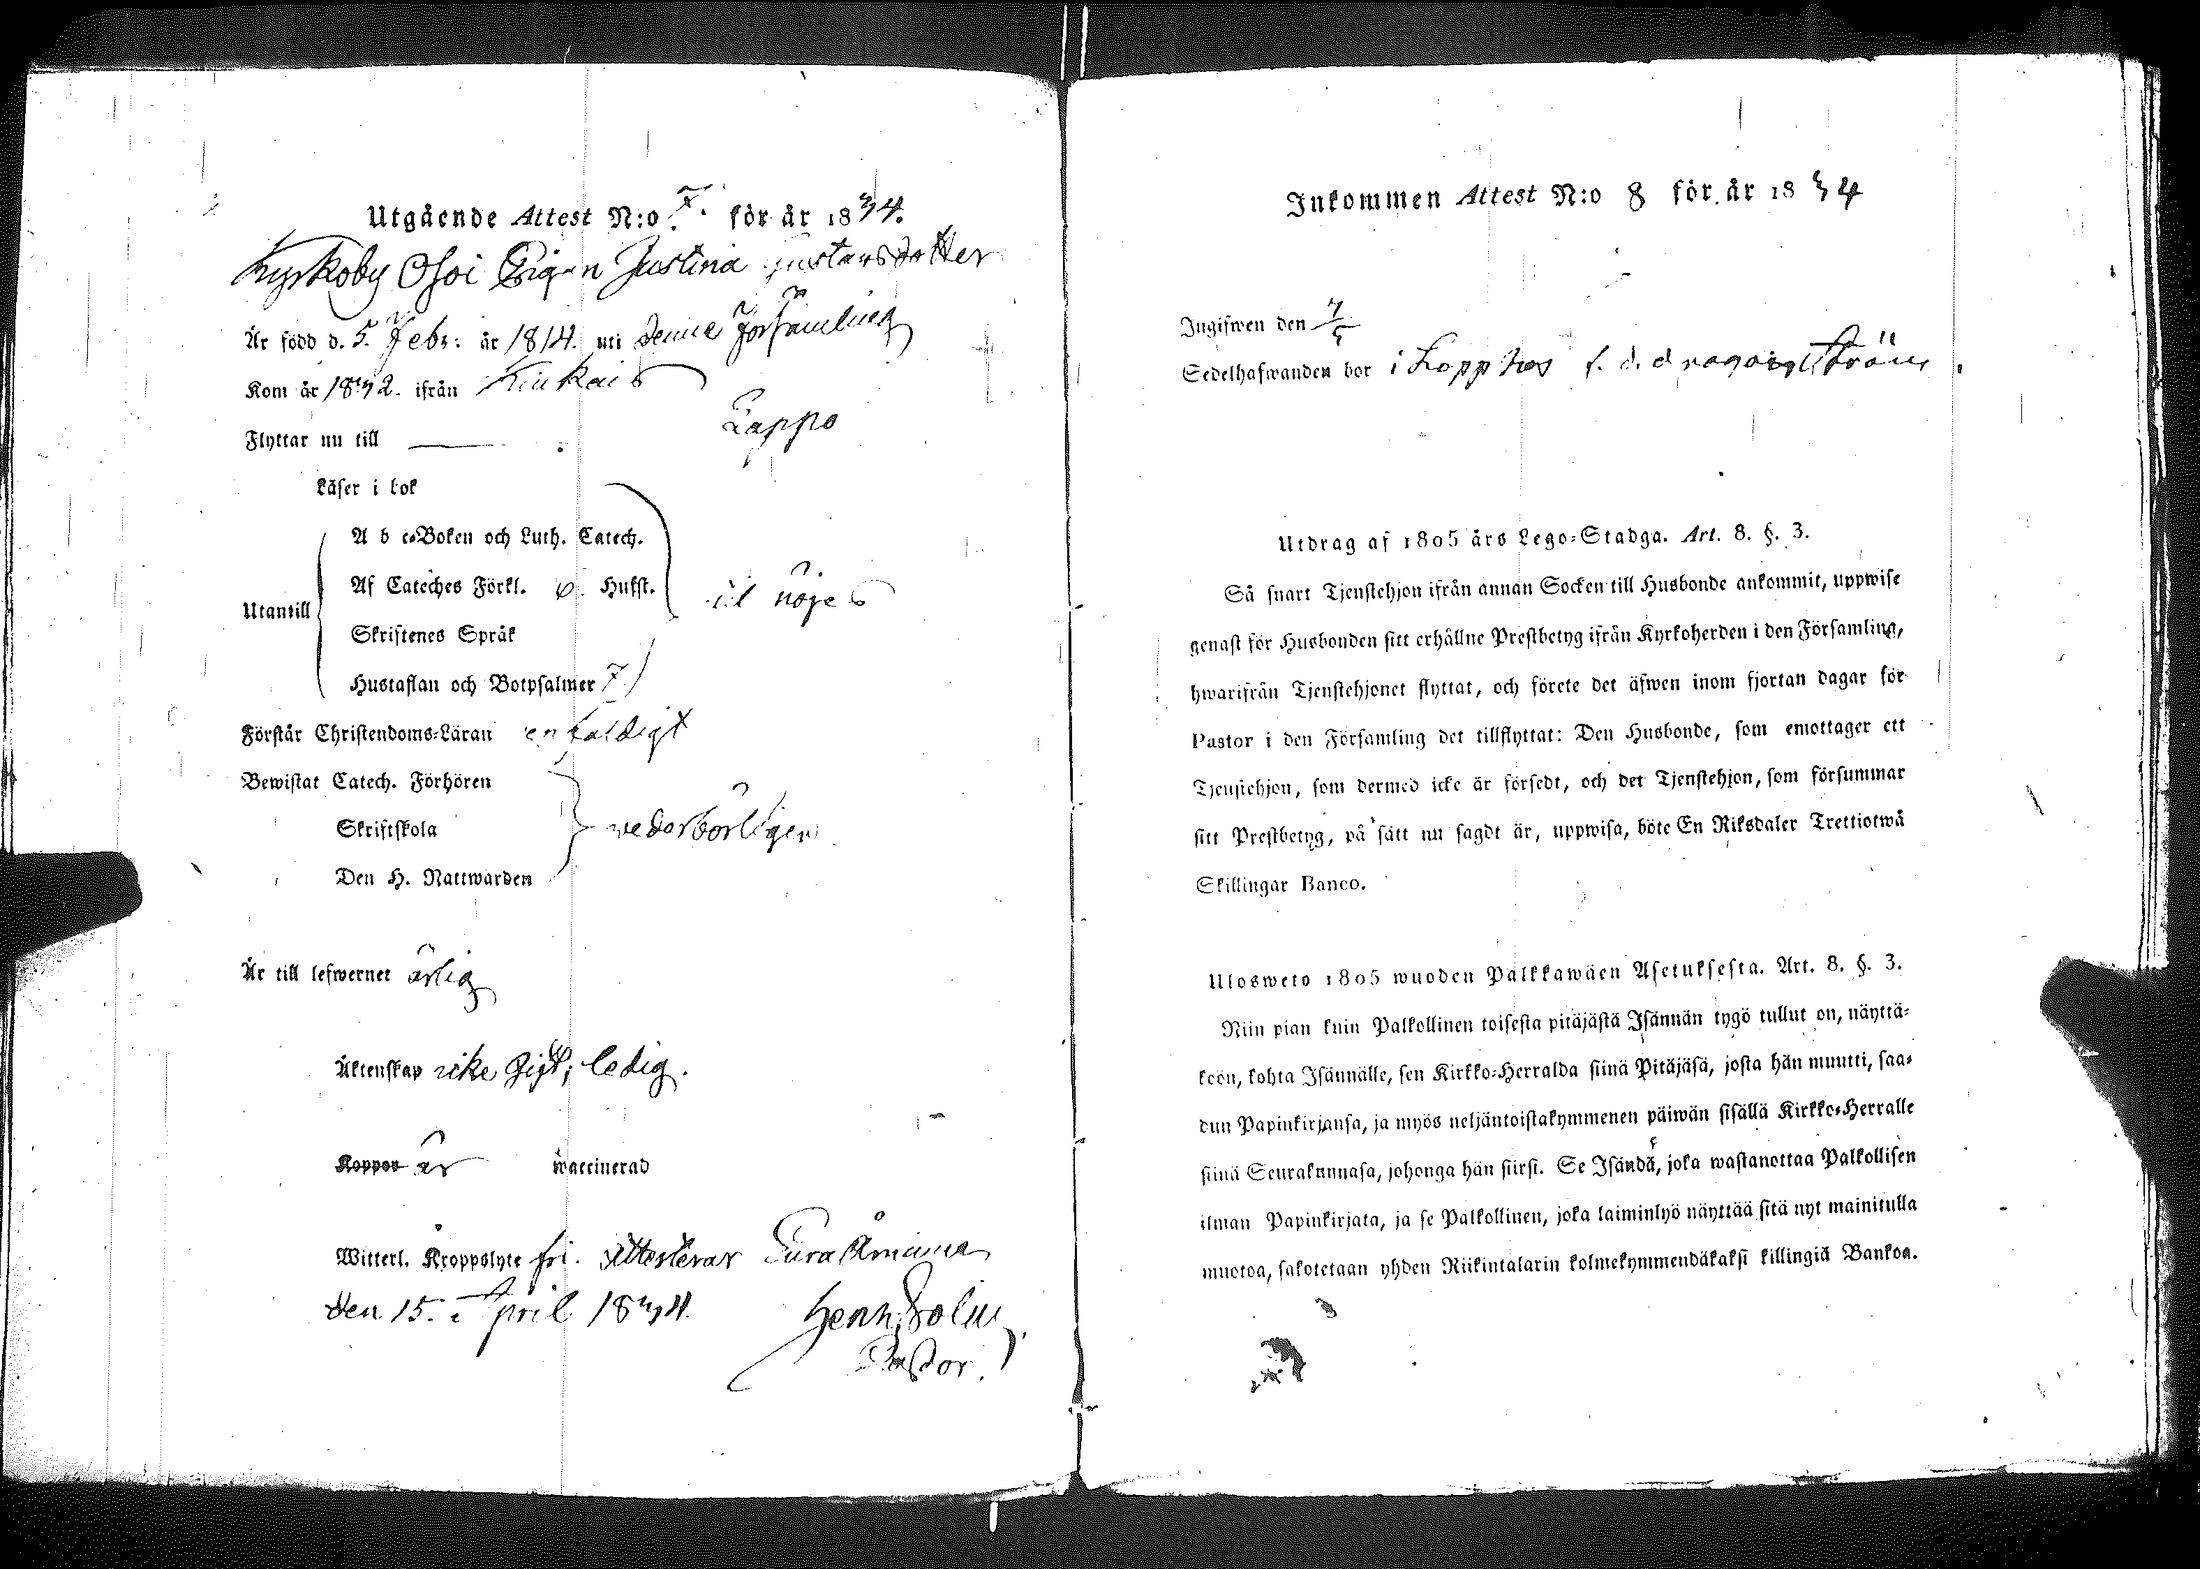 Utgående Attest N:o 7. för år 1834.
Kyrkoby Ojoi Pigan Justina Gustavsdotter
Är född d. 5. Febr: år 1814. uti denna Församling
Kom år 1832. ifrån Kiukais
Flyttar nu till Lappo
Läser i bok
A b c-Boken och Luth. Catech.
Af Cateches Förkl. o. Hufst.
Utantill til nöjes
Skriftenes Språk
Hustaflan och Botpsalmer 7
Förstår Christendoms-Läran enfaldigt
Bewistat Catech. Förhören
Skriftskola wederbörligen
Den H. Nattwarden
Är till lefwernet ärlig
Äktenskap icke gift; ledig.
Koppor är waccinerad
Witterl. Kroppslyte fri. Attesterar Eura Åminne
den 15. April 1834. Henr.
Pastor.
Inkommen Attest N:o 8 för år 1834
Ingifwen den 7/5
Sedelhafwanden bor i Lapp
Utdrag af 1805 års Lego-Stadga. Art. 8. §. 3.
Så snart Tjenstehjon ifrån annan Socken till Husbonde ankommit, uppwise
genast för Husbonden sitt erhållne Prestbetyg ifrån Kyrkoherden i den Församling,
hwarifrån Tjenstehjonet flyttat, och förete det äfwen inom fjortan dagar för
Pastor i den Församling det tillflyttat: Den Husbonde, som emottager ett
Tjenstehjon, som dermed icke är försedt, och det Tjenstehjon, som försummar
sitt Prestbetyg, på sätt nu sagdt är, uppwisa, böte En Riksdaler Trettiotwå
Skillingar Banco.
Ulosweto 1805 wuoden Palkkawäen Asetuksesta. Art. 8. §. 3.
Niin pian kuin Palkollinen toisesta pitäjästä Isännän tygö tullut on, näyttä-
köön, kohta Isännälle, sen Kirkko-Herralda siinä Pitäjäsä, josta hän muutti, saa-
dun Papinkirjansa, ja myös neljäntoistakymmenen päiwän sisällä Kirkko-Herralle
siinä Seurakunnasa, johonga hän siirsi. Se Isändä, joka wastanottaa Palkollisen
ilman Papinkirjata, ja se Palkollinen, joka laiminlyö näyttää sitä nyt mainitulla
muotoa, sakotetaan yhden Riikintalarin kolmekymmendäkaksi killingiä Bankoa.